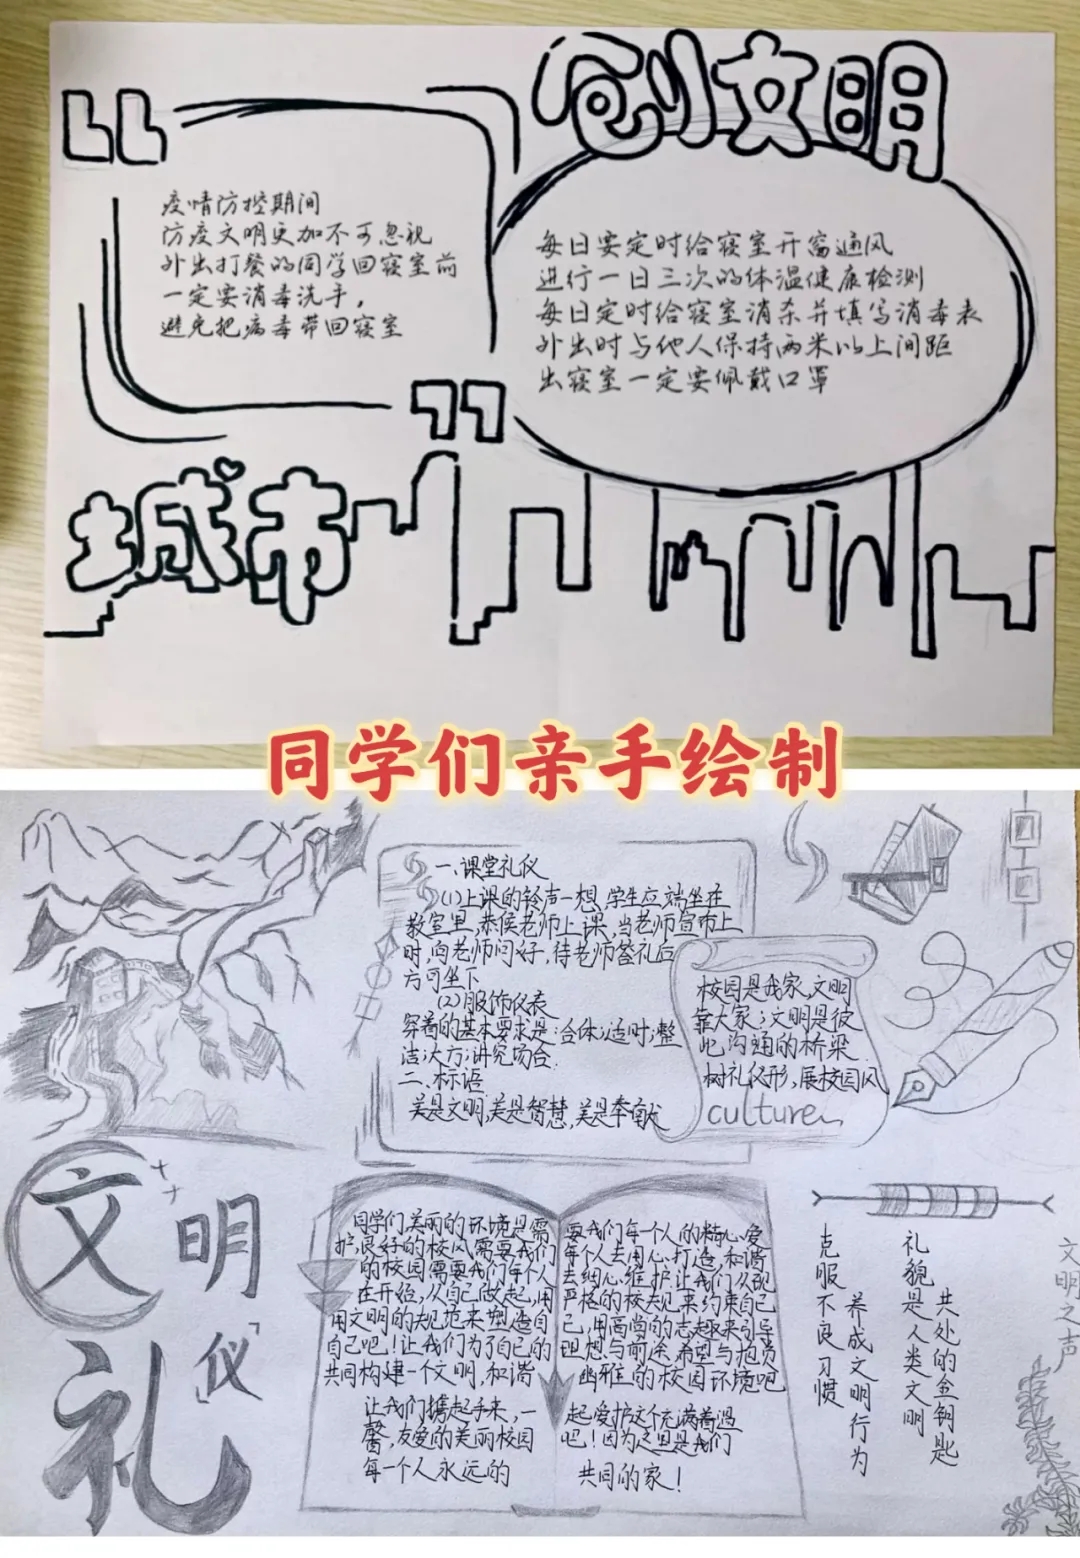 创文明
疫情防控期间
防疫文明更加不可忽视
外出打餐的同学回寝室前
一定要消毒洗手，
避免把病毒带回寝室
每日要定时给寝室开窗通风
进行一日三次的体温健康检测
每日定时给寝室消杀并填写消毒表
外出时与他人保持两米以上间距
出寝室一定要佩戴口罩
城市
同学们亲手绘制
一.课堂礼仪
(1)上课的铃声一想,学生应端坐在
教室里,恭候老师上课,当老师宣布上
时,向老师问好,待老师答礼后
方可坐下
(2)服饰仪表
穿着的基本要求是:合体;适时;整
洁;大方;讲究场合.
二.标语
美是文明,美是智慧,美是奉献
校园是我家,文明
靠大家;文明是彼
此沟通的桥梁
树礼仪形,展校园风
culture
文明
「仪」
礼
同学们,美丽的环境是需
护,良好的校风需要我们
的校园需要我们每个人
在开始,从自己做起,用
用文明的规范来塑造自
自己吧!让我们为了自己的
共同构建一个文明,和谐
让我们携起手来,一
馨,友爱的美丽校园
每一个人永远的
要我们每一个人的精心爱
每个人去用心打造,和谐
去细心维护,让我们从现
严格的校规来约束自己
己,用高尚的志趣来引导
理想与前途,希望与抱负
幽雅的校园环境吧
起爱护这个充满着温
吧!因为这里是我们
共同的家!
克服不良习惯
养成文明行为
礼貌是人类文明
共处的金钥匙
文明之声